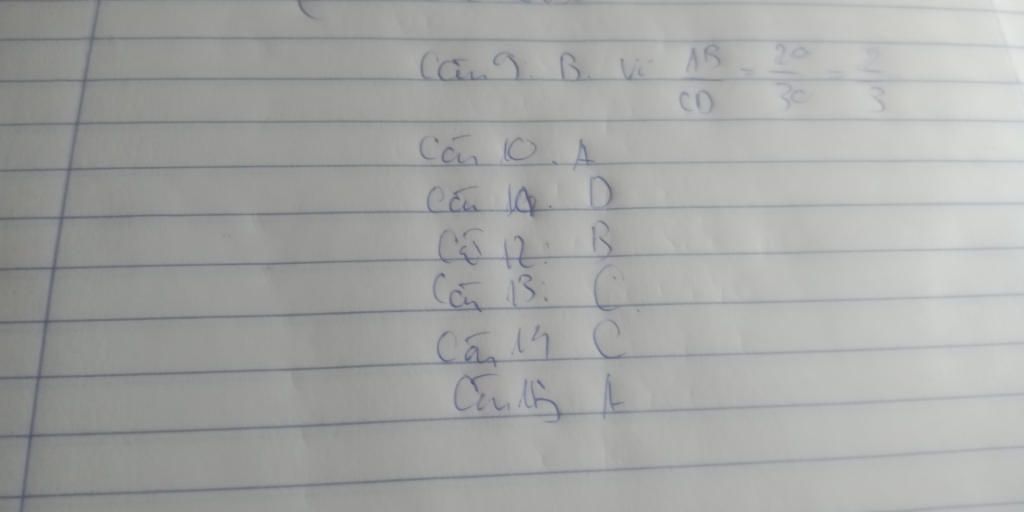 Câu 9. B. Vì AB/CD = 20/30 = 2/3
Câu 10. A
Câu 11. D
Câu 12: B
Câu 13: C
Câu 14 C
Câu 15 A